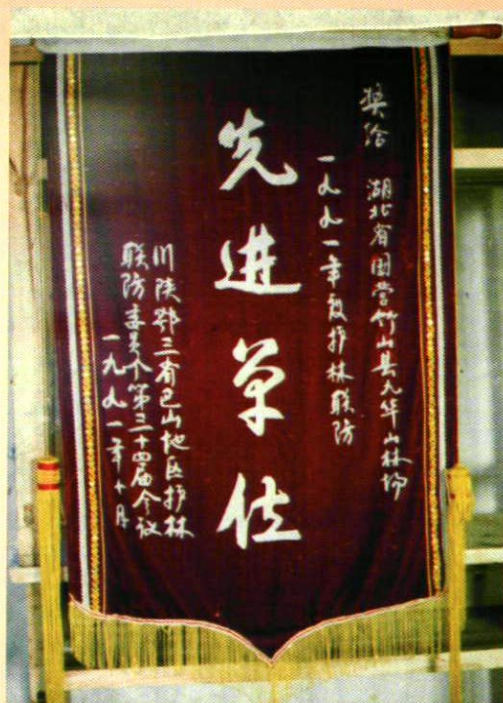 奖给 湖北省国营竹山县九华山林场
一九九一年度护林联防
先进单位
川陕鄂三省巴山地区护林
联防委员会第三十四届会议
一九九一年十月